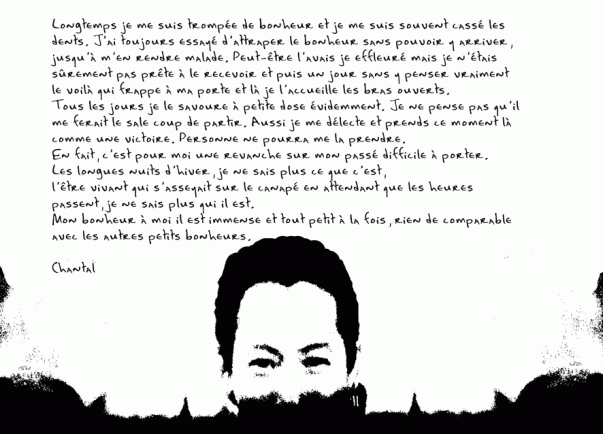 Longtemps je me suis trompée de bonheur et je me suis souvent cassé les
dents. J'ai toujours essayé d'attraper le bonheur sans pouvoir y arriver,
jusqu'à m'en rendre malade. Peut-être l'avais je effleuré mais je n'étais
sûrement pas prête à le recevoir et puis un jour sans y penser vraiment
le voilà qui frappe à ma porte et là je l'accueille les bras ouverts.
Tous les jours je le savoure à petite dose évidemment. Je ne pense pas qu'il
me ferait le sale coup de partir. Aussi je me délecte et prends ce moment là
comme une victoire. Personne ne pourra me la prendre.
En fait, c'est pour moi une revanche sur mon passé difficile à porter.
Les longues nuits d'hiver, je ne sais plus ce que c'est,
l'être vivant qui s'asseyait sur le canapé en attendant que les heures
passent, je ne sais plus qui il est.
Mon bonheur à moi il est immense et tout petit à la fois, rien de comparable
avec les autres petits bonheurs.
Chantal